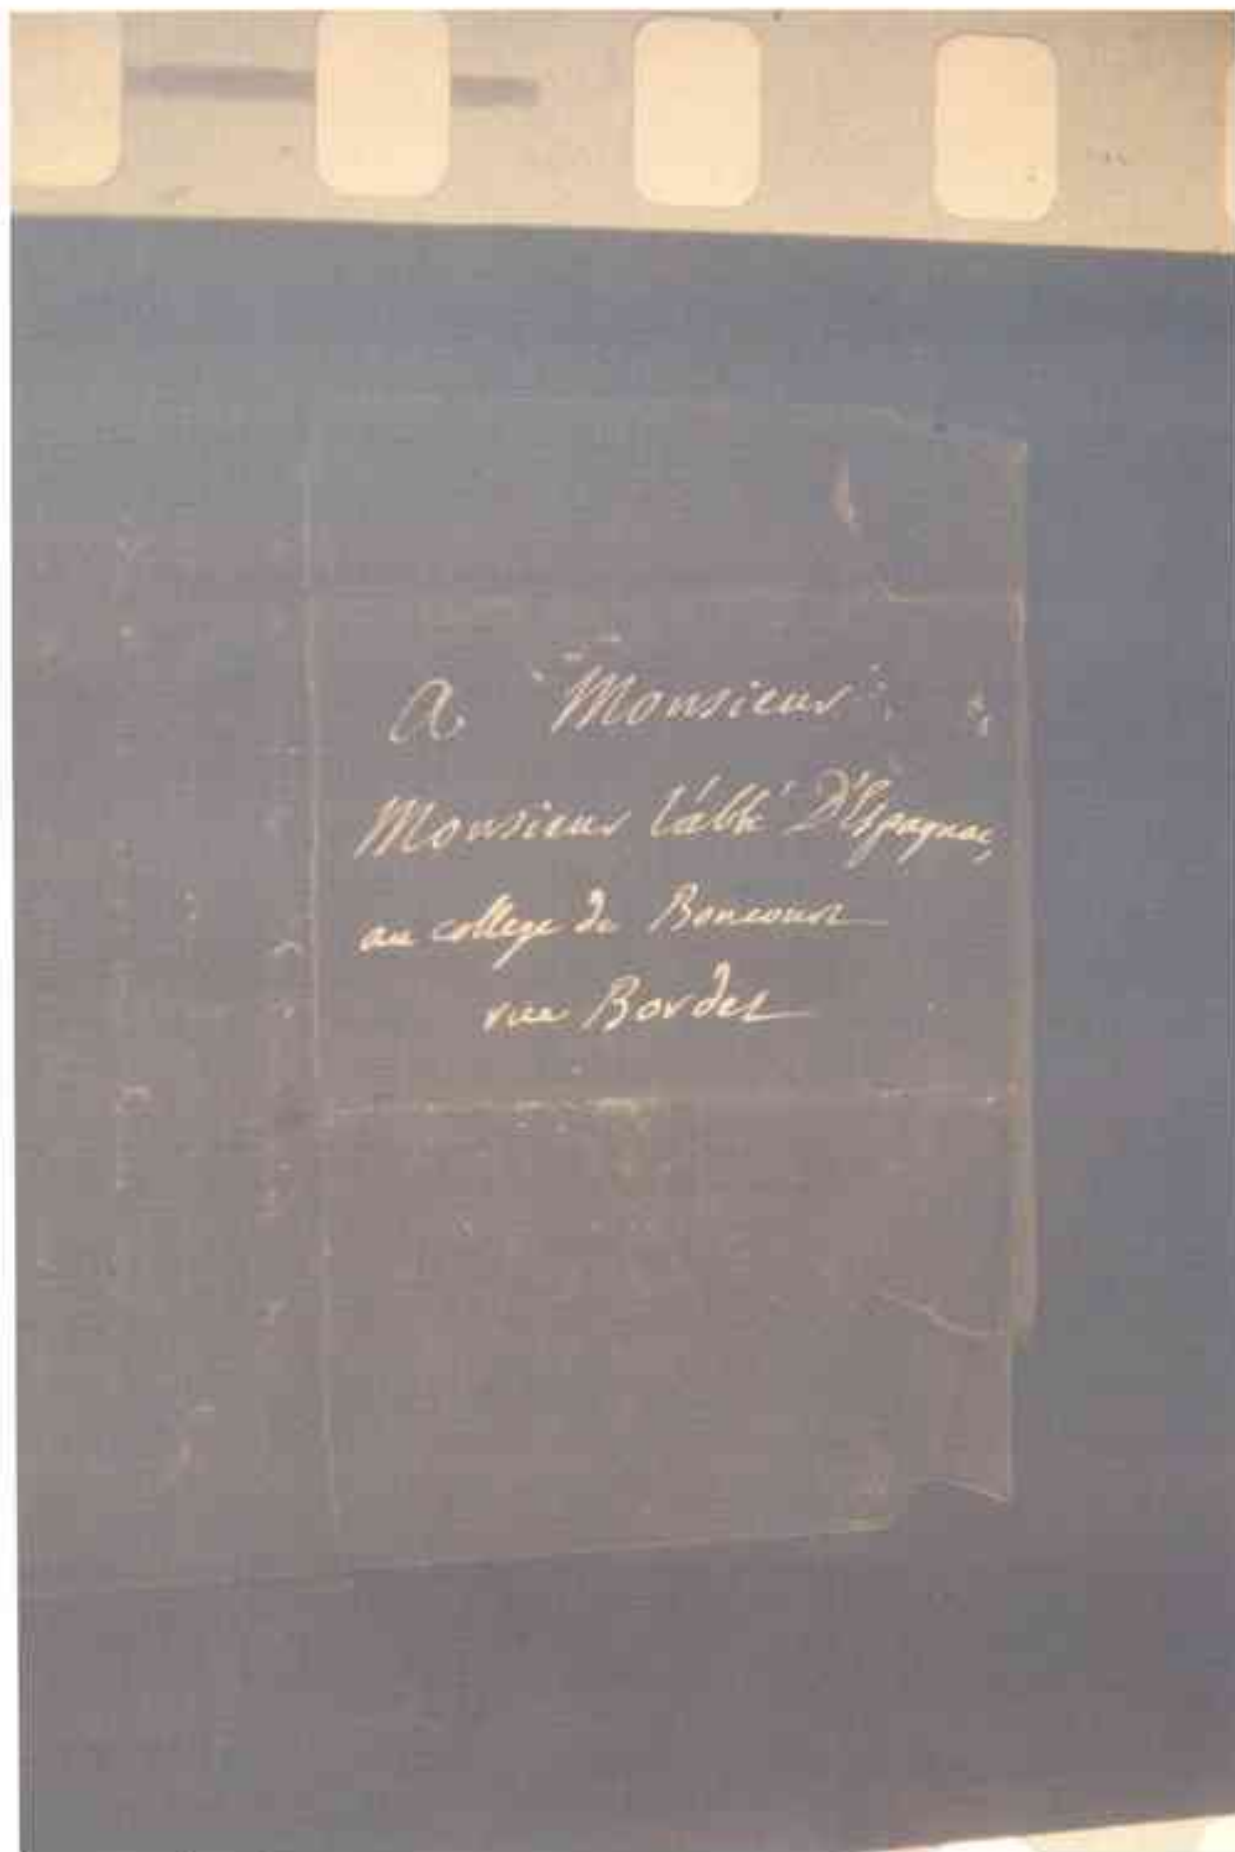 A Monsieur
Monsieur L'abbé D'Espagnac,
au college de Boncourt
rue Bordet